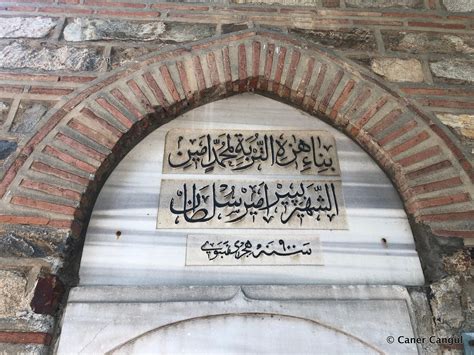 بناء هذه التربة لمحمد امين
الشهير ببير امير سلطان
سنه ٩٠٠ هجرى نبوى
© Caner Cangül